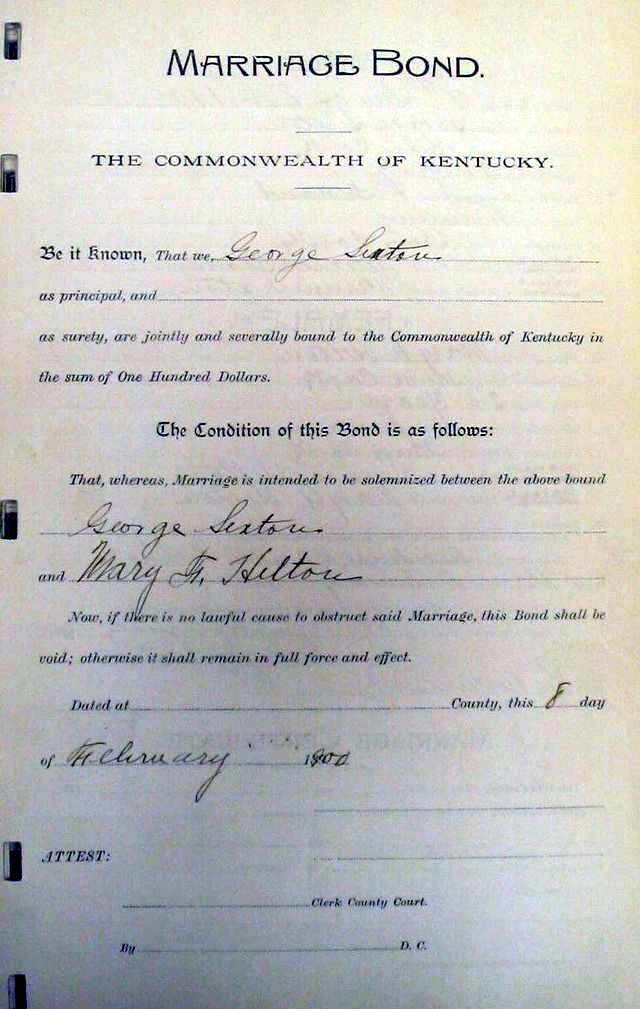 MARRIAGE BOND.
THE COMMONWEALTH OF KENTUCKY.
Be it Known, That we, George Sexton
as principal, and
as surety, are jointly and severally bound to the Commonwealth of Kentucky in
the sum of One Hundred Dollars.
The Condition of this Bond is as follows:
That, whereas, Marriage is intended to be solemnized between the above bound
George Sexton
and Mary F. Helton
Now, if there is no lawful cause to obstruct said Marriage, this Bond shall be
void; otherwise it shall remain in full force and effect.
Dated at County, this 8 day
of February 1900
ATTEST:
Clerk County Court.
By D. C.